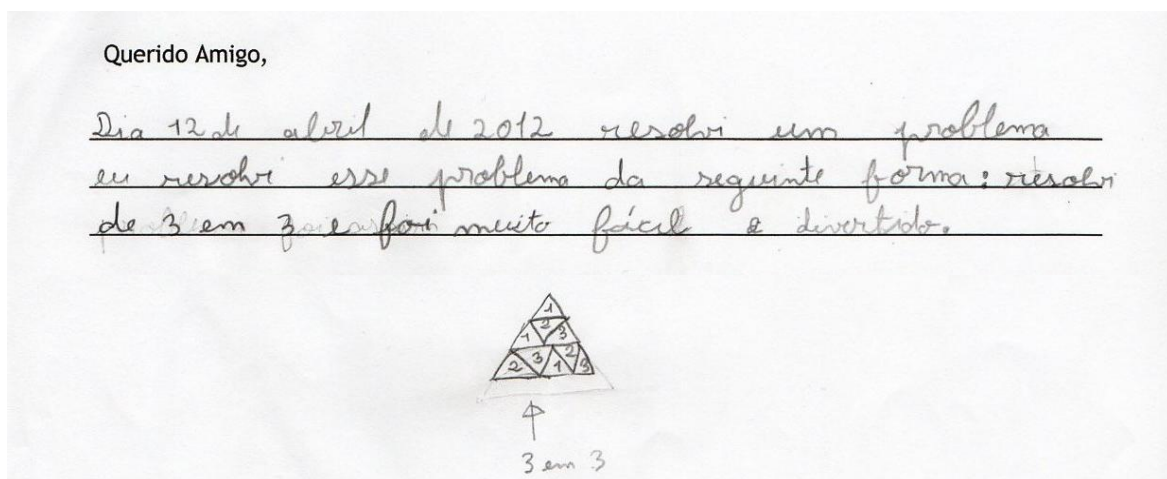 Querido Amigo,
Dia 12 de abril de 2012 resolvi um problema
eu resolvi esse problema da seguinte forma: resolvi
de 3 em 3 e foi muito fácil e divertido.
1
1 2 3
2 3 1 2 3
3 em 3